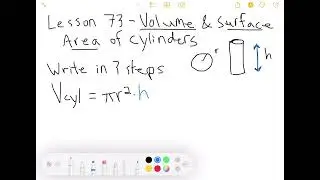 Lesson 73 - Volume & Surface
Area of cylinders
r
h
Write in 3 steps
Vcyl = πr²·h